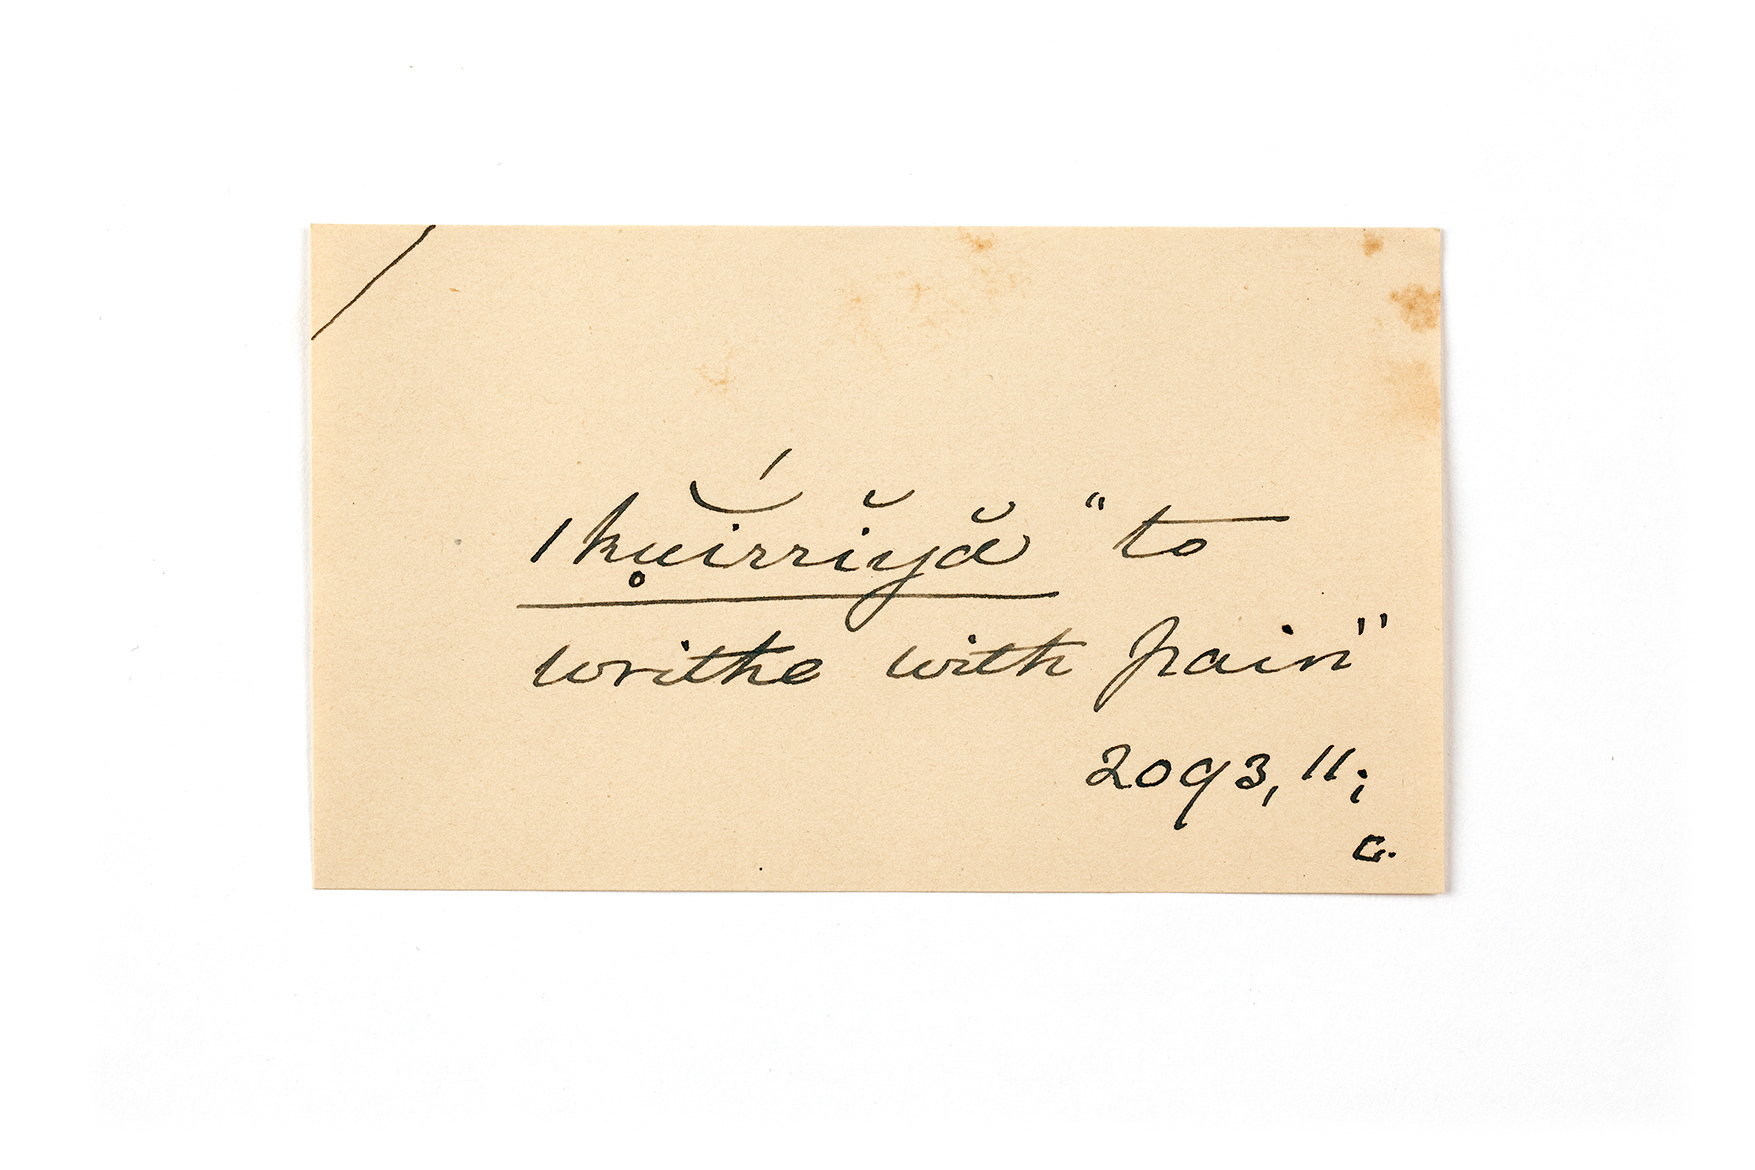 |kụı̆́rrĭyă "to
writhe with pain"
2093, 11;
C.